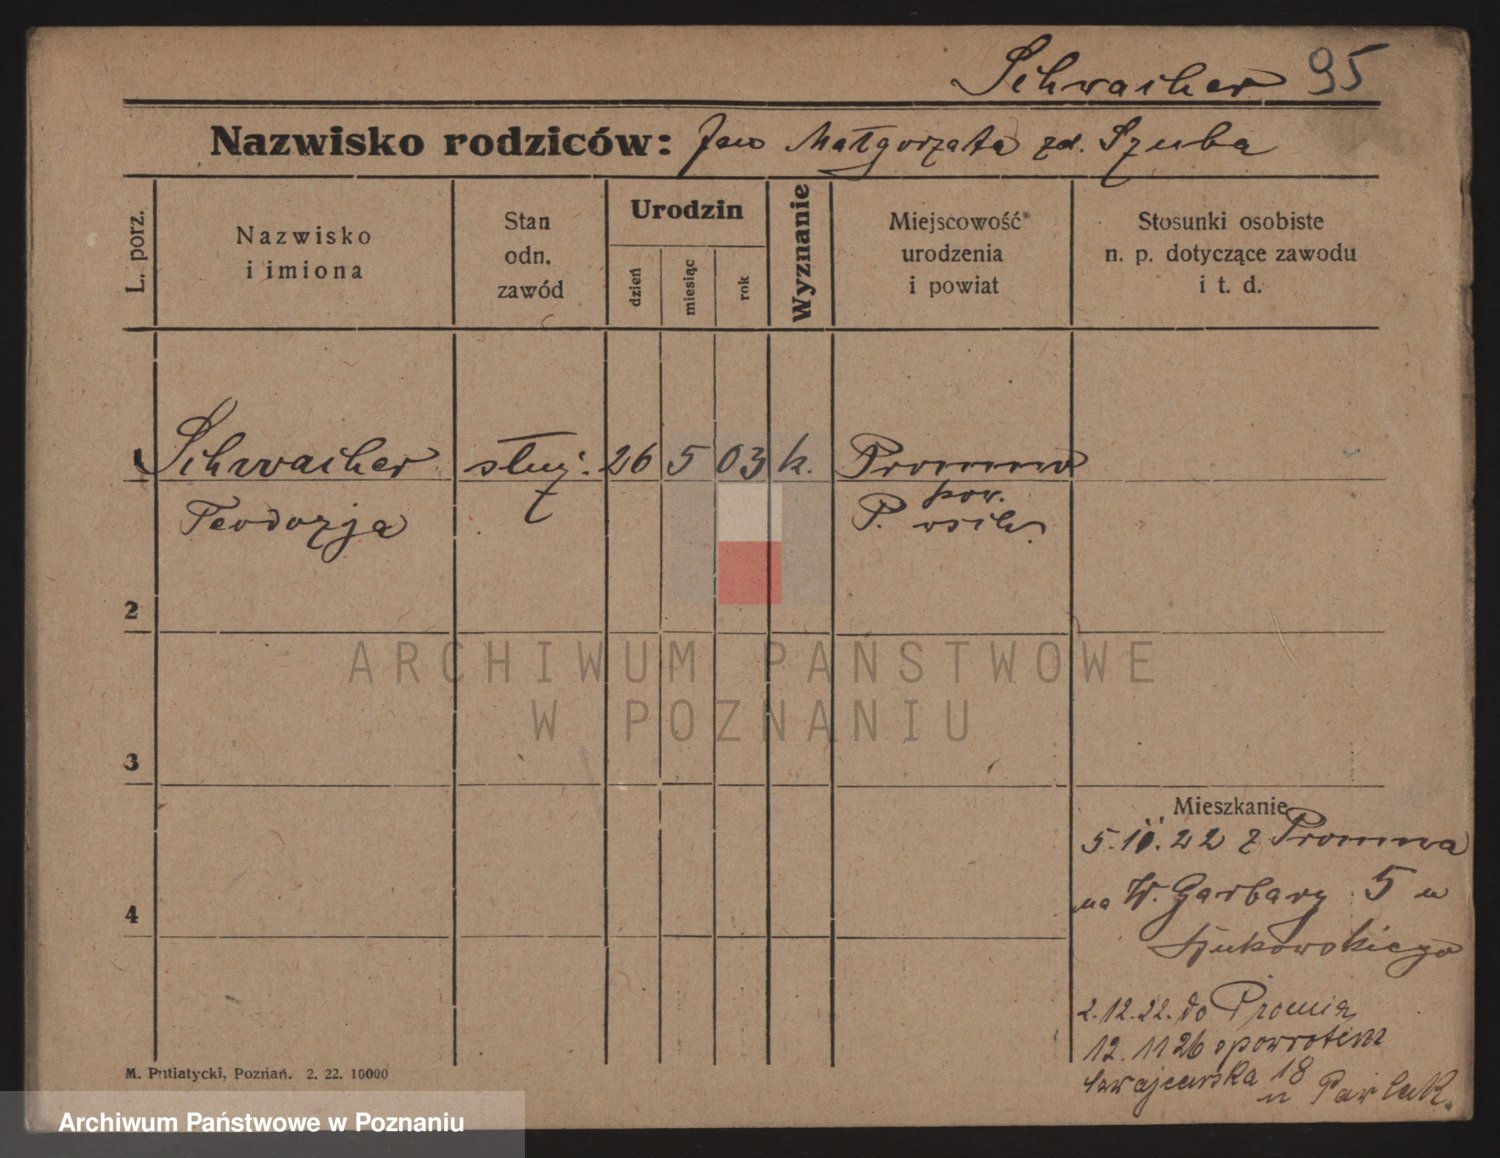 Schwacher 95
Nazwisko rodziców: Jan Małgorzata zd. Szuba
L. porz.
Nazwisko
i imiona
Stan
odn.
zawód
Urodzin
dzień
miesiąc
rok
Wyznanie
Miejscowość
urodzenia
i powiat
Stosunki osobiste
n. p. dotyczące zawodu
i t. d.
1 Schwacher służ. 26 5 03 k. Promno
Teodozja
pow.
P. wsch.
2
3
4
Mieszkanie
5.10.22 z Promna
na W. Garbary 5 u
2.12.22. do
12.11 26 spowrotem
Szwajcarska 18
u Pawlak.
M. Putiatycki, Poznań. 2. 22. 10000
ARCHIWUM PAŃSTWOWE
W POZNANIU
Archiwum Państwowe w Poznaniu